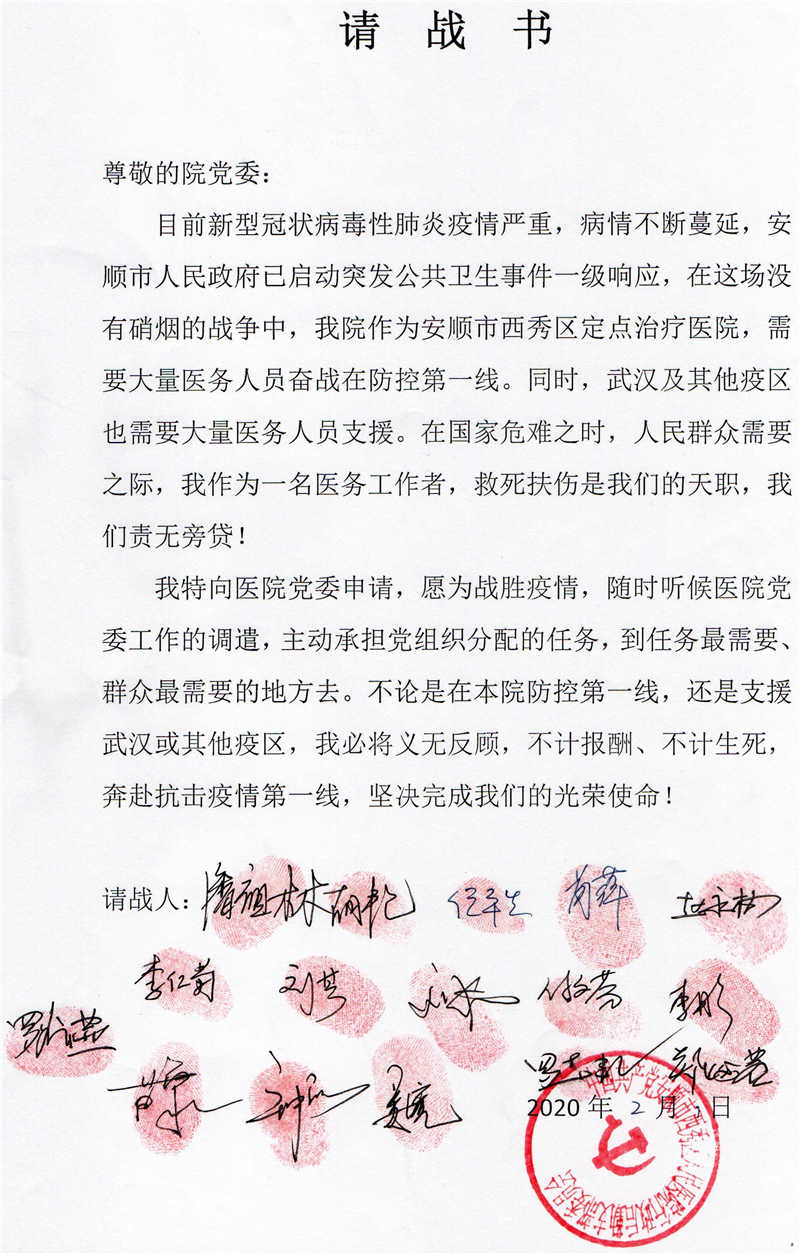 请战书
尊敬的院党委：
目前新型冠状病毒性肺炎疫情严重，病情不断蔓延，安
顺市人民政府已启动突发公共卫生事件一级响应，在这场没
有硝烟的战争中，我院作为安顺市西秀区定点治疗医院，需
要大量医务人员奋战在防控第一线。同时，武汉及其他疫区
也需要大量医务人员支援。在国家危难之时，人民群众需要
之际，我作为一名医务工作者，救死扶伤是我们的天职，我
们责无旁贷！
我特向医院党委申请，愿为战胜疫情，随时听候医院党
委工作的调遣，主动承担党组织分配的任务，到任务最需要、
群众最需要的地方去。不论是在本院防控第一线，还是支援
武汉或其他疫区，我必将义无反顾，不计报酬、不计生死，
奔赴抗击疫情第一线，坚决完成我们的光荣使命！
请战人：
李仁菊
2020 年 2 月 日